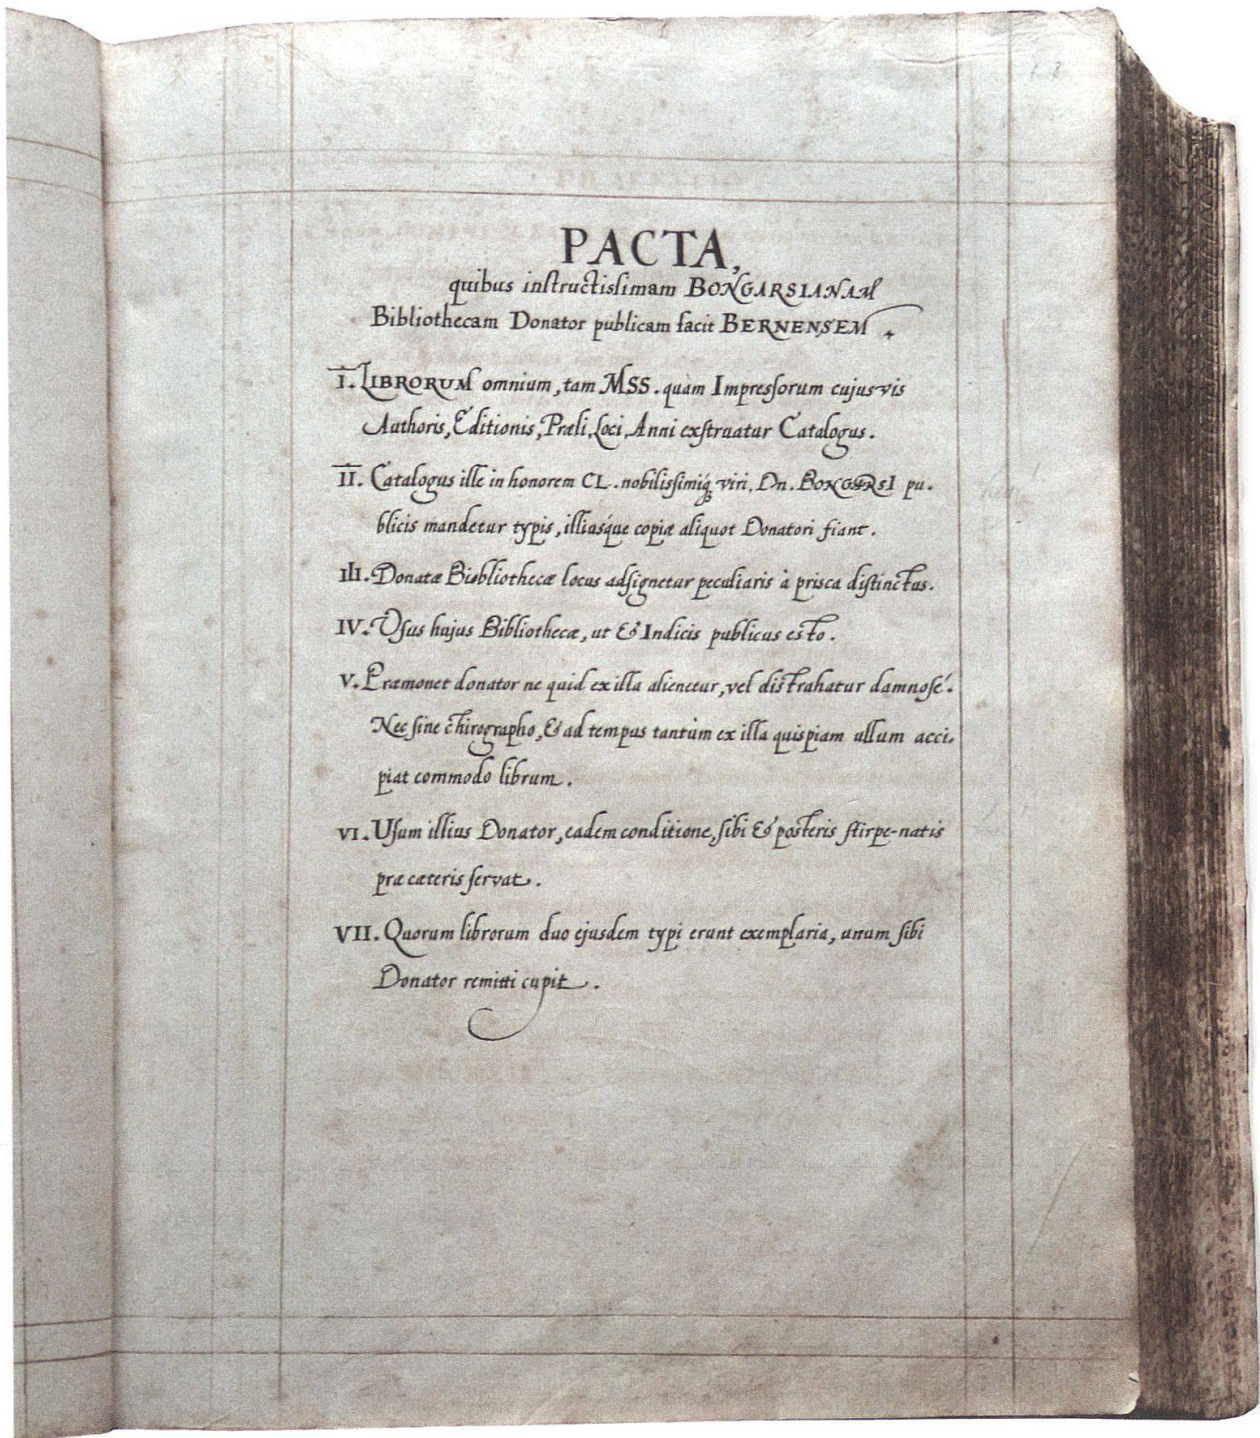 PACTA,
quibus instructissimam BONGARSIANAM
Bibliothecam Donator publicam facit BERNENSEM.
I. LIBRORUM omnium, tam MSS. quàm Impressorum cujusvis
Authoris, Editionis, Præli, Loci, Anni exstruatur Catalogus.
II. Catalogus ille in honorem CL. nobilissimiq́ꝫ viri, Dn. BONGARSI pu-
blicis mandetur typis, illiusq́ue copiæ aliquot Donatori fiant.
III. Donatæ Bibliothecæ locus adsignetur peculiaris à prisca distinctus.
IV. Usus hujus Bibliothecæ, ut & Indicis publicus esto.
V. Præmonet donator ne quid ex illa alienetur, vel distrahatur damnosé.
Nec sine chirographo, & ad tempus tantùm ex illa quispiam ullum acci-
piat commodo librum.
VI. Usum illius Donator, eadem conditione, sibi & posteris stirpe-natis
præ cæteris servat.
VII. Quorum librorum duo ejusdem typi erunt exemplaria, unum sibi
Donator remitti cupit.